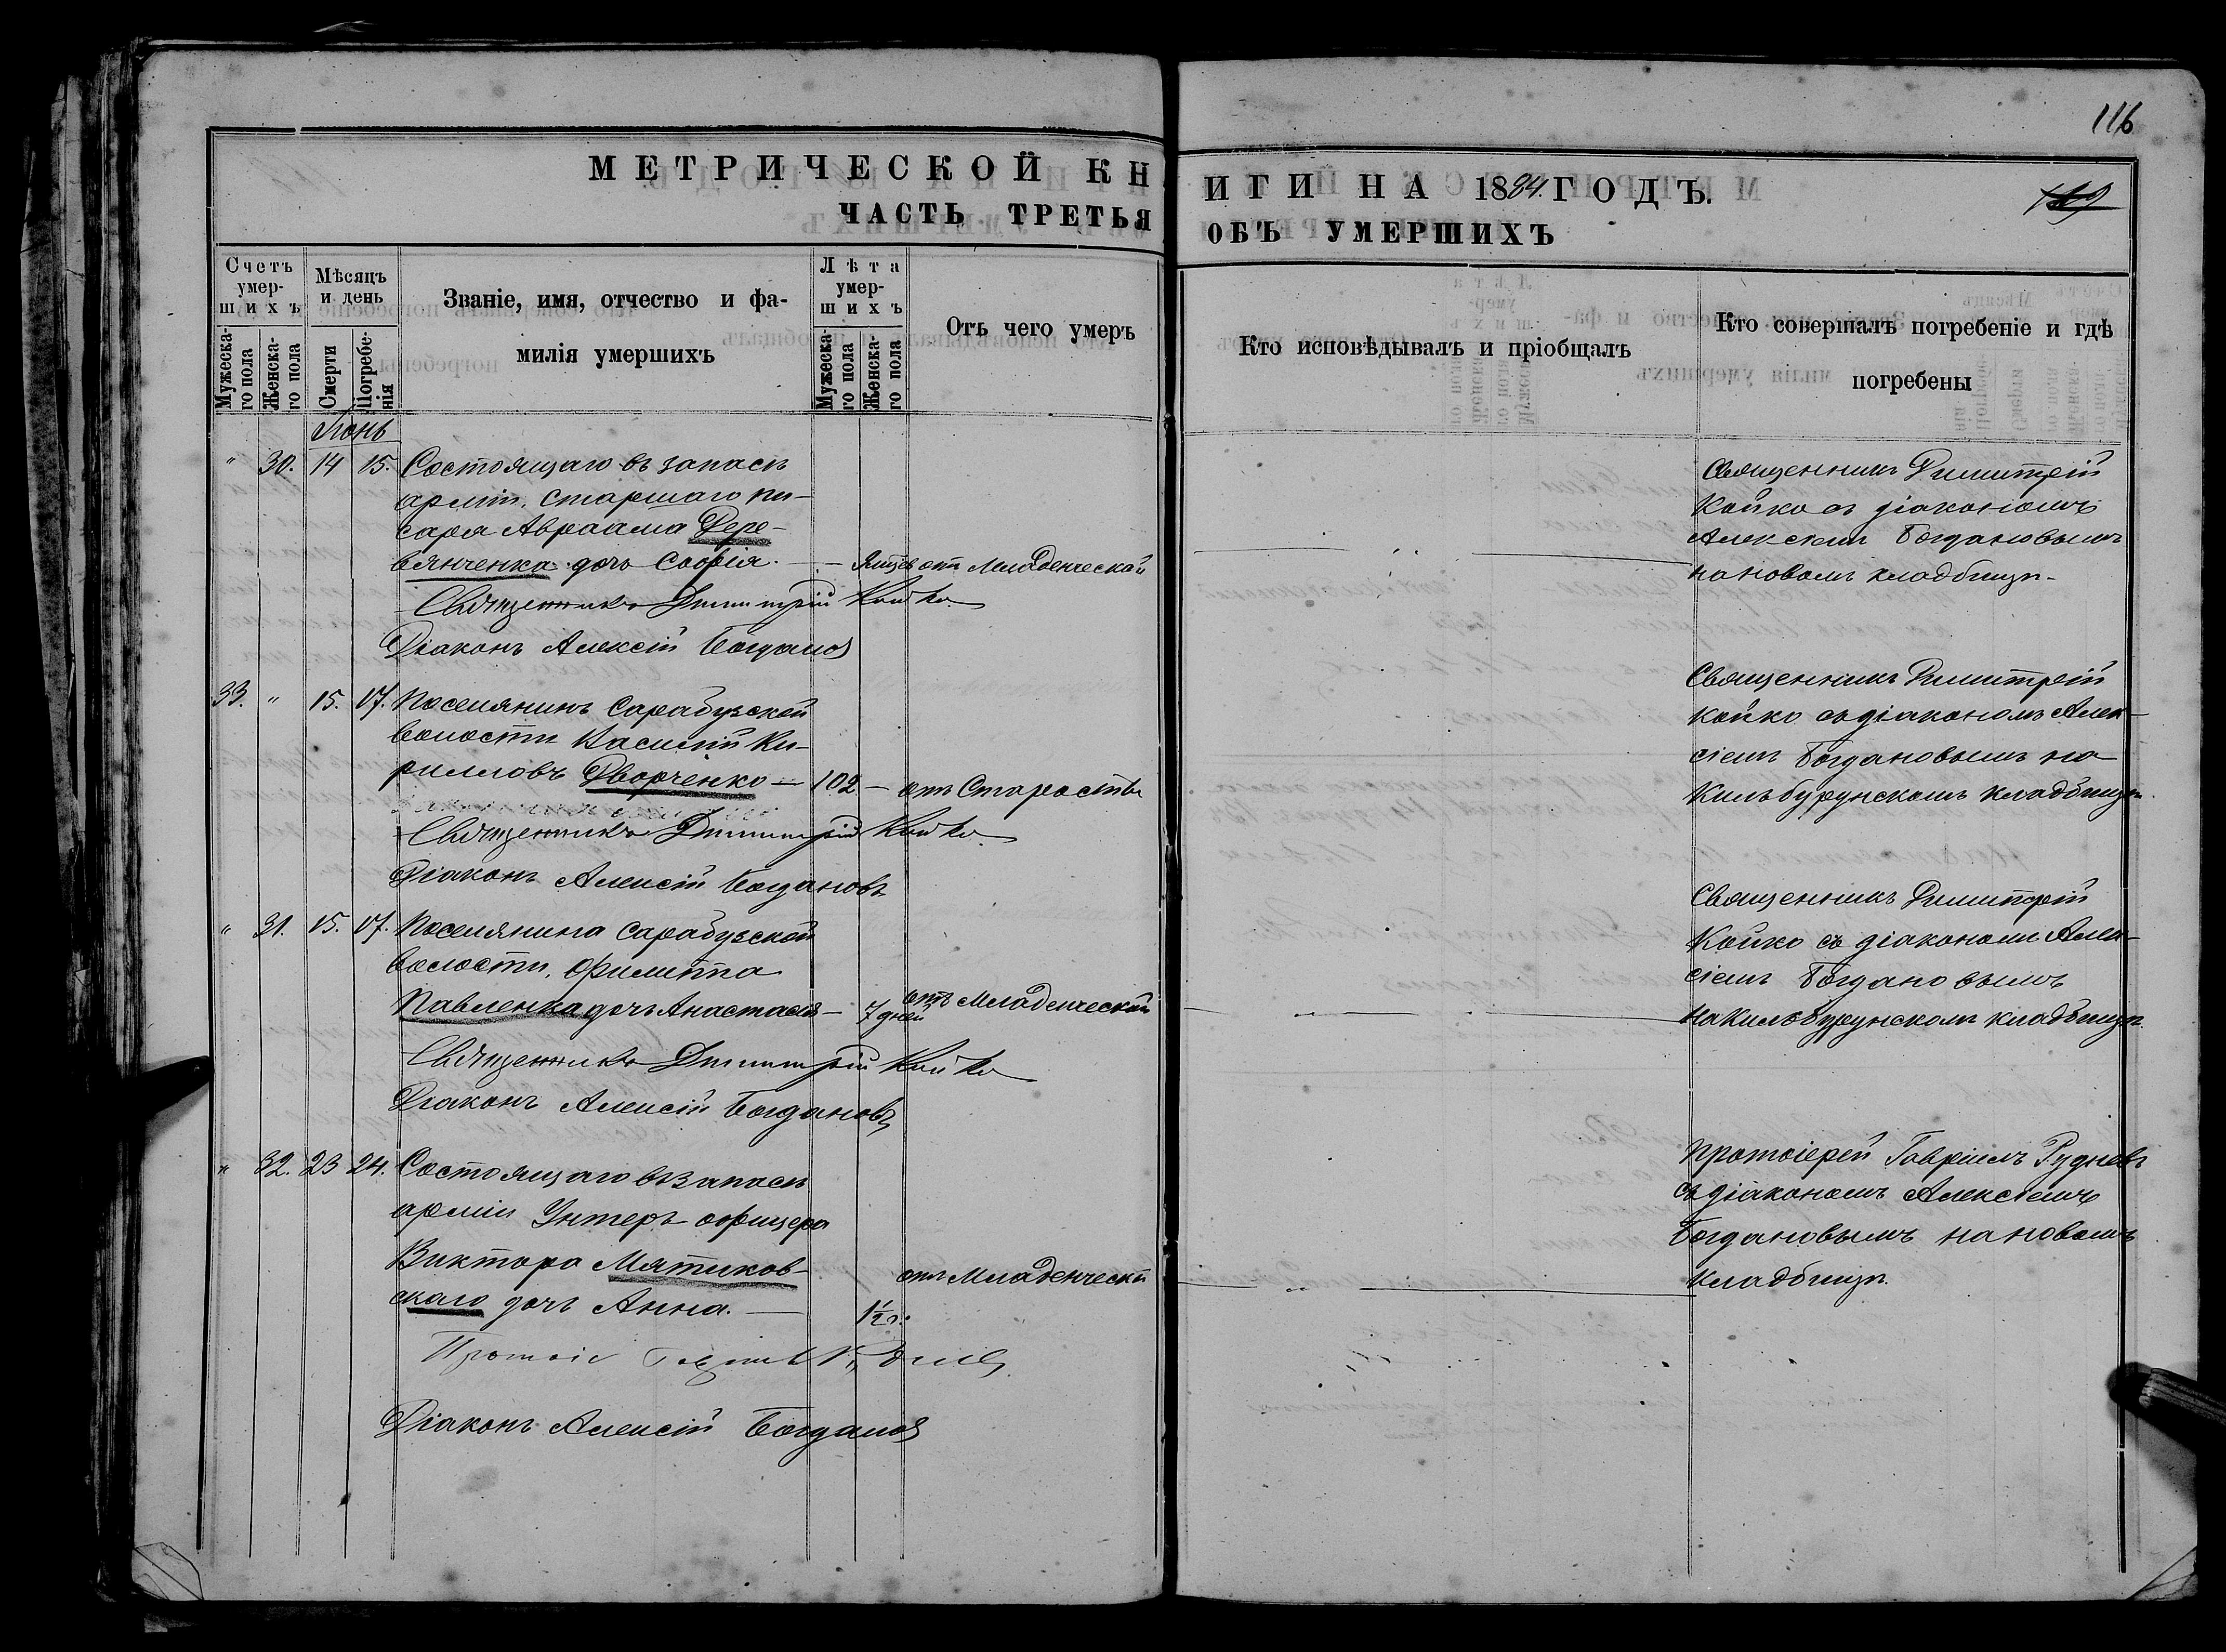 116
МЕТРИЧЕСКОЙ КНИГИ НА 1884. ГОДЪ.
119
ЧАСТЬ ТРЕТЬЯ ОБЪ УМЕРШИХЪ
Счетъ умер-
шихъ
Мужеска-
го пола
Женска-
го пола
Мѣсяцъ
и день
Смерти
Погребе-
нія
Званіе, имя, отчество и фа-
милія умершихъ
Лѣта
умер-
шихъ
Мужеска-
го пола
Женска-
го пола
Отъ чего умеръ
Кто исповѣдывалъ и пріобщалъ
Кто совершалъ погребеніе и гдѣ
погребены
Іюнь
" 30. 14 15. Состоящаго въ запасѣ
арміи, старшаго пи-
саря Авраама Дере-
вянченка дочь Софія. — отъ младенческой
Священникъ Димитрій
Койко съ діакономъ
Алексіемъ Богдановымъ
на новомъ кладбищѣ.
Священникъ Димитрій Койко
Діаконъ Алексій Богдановъ
33. " 15. 17. Поселянинъ Сарабузской
волости Василій Ки-
рилловъ Дворченко — 102 — отъ старости
Священникъ Димитрій
Койко съ діакономъ Алек-
сіемъ Богдановымъ на
Кильбурунскомъ кладбищѣ.
Священникъ Димитрій Койко
Діаконъ Алексій Богдановъ
" 31. 15. 17. Поселянина Сарабузской
волости, Филиппа
Павленка дочь Анастасія — 7 дней отъ младенческой
Священникъ Димитрій
Койко съ діакономъ Алек-
сіемъ Богдановымъ
на Кильбурунскомъ кладбищѣ.
Священникъ Димитрій Койко
Діаконъ Алексій Богдановъ
" 32. 23 24. Состоящаго въ запасѣ
арміи Унтеръ-офицера
Виктора Мятиков-
скаго дочь Анна. — 1½ г. отъ младенческой
Протоіерей Гавріилъ Рудневъ
съ діакономъ Алексіемъ
Богдановымъ на новомъ
кладбищѣ.
Діаконъ Алексій Богдановъ